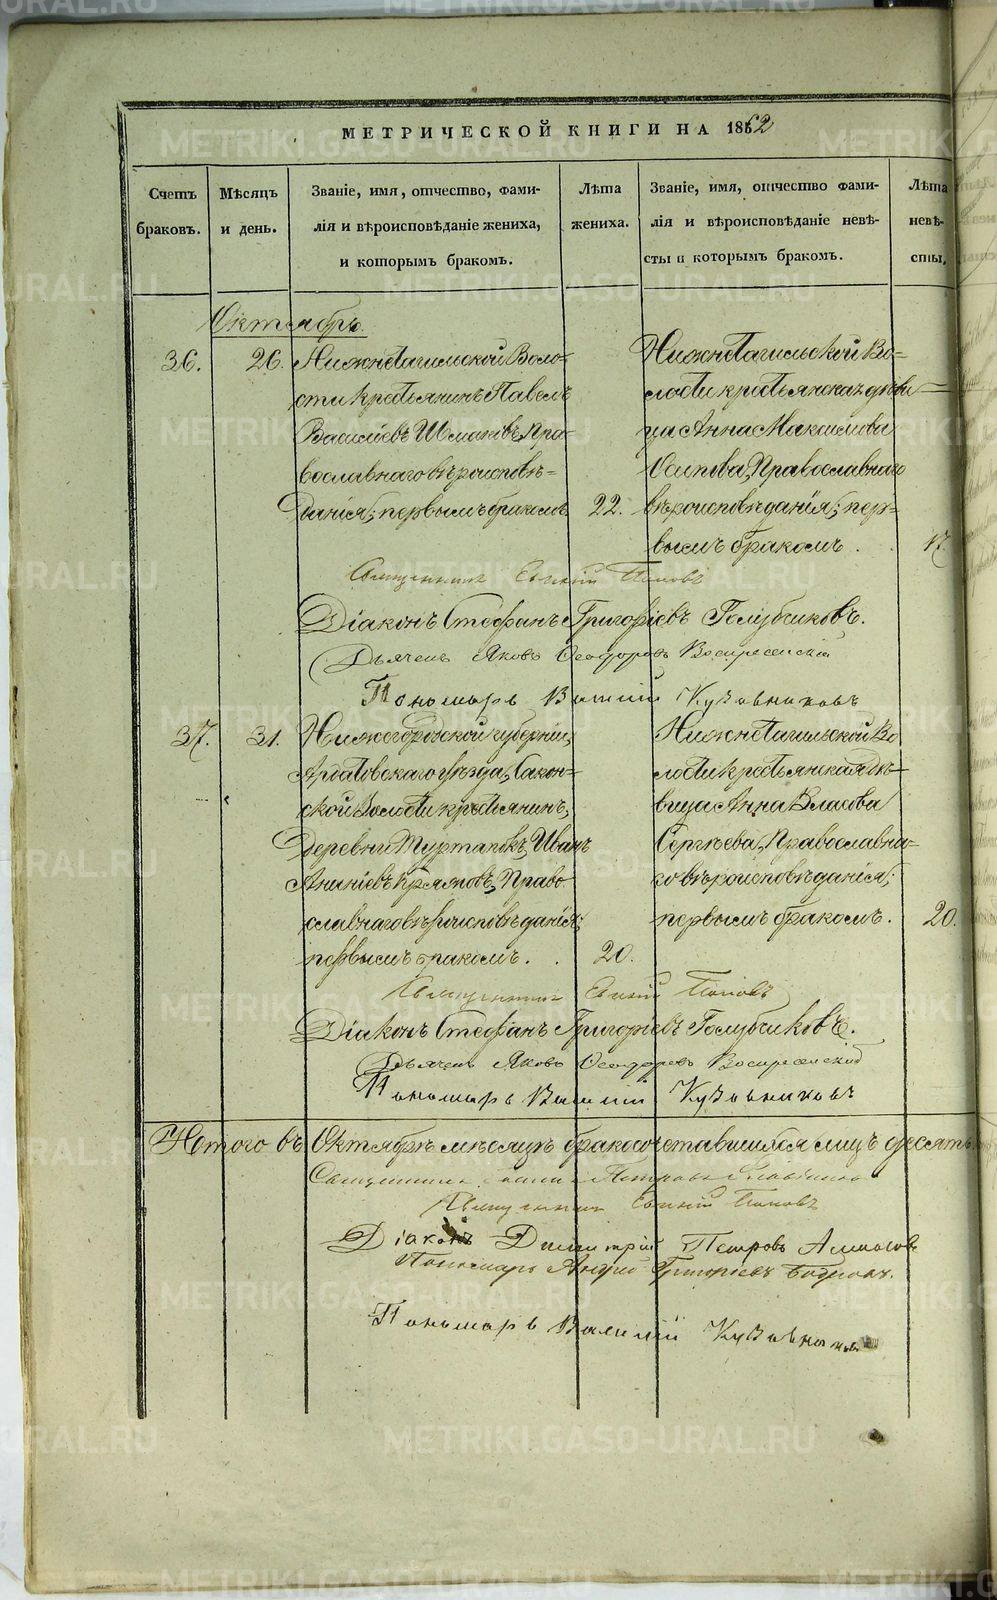 МЕТРИЧЕСКОЙ КНИГИ НА 1862
Счетъ браковъ.
Мѣсяцъ и день.
Званіе, имя, отчество, фами-
лія и вѣроисповѣданіе жениха,
и которымъ бракомъ.
Лѣта жениха.
Званіе, имя, отчество фами-
лія и вѣроисповѣданіе невѣ-
сты и которымъ бракомъ.
Лѣта невѣ-
сты.
Октябрь.
36.
26.
Нижнетагильской Воло-
сти крестьянинъ Павелъ
Василіевъ Шмаковъ, Пра-
вославнаго вѣроисповѣ-
данія; первымъ бракомъ
22.
Нижнетагильской Во-
лости крестьянская дѣви-
ца Анна Максимова
Осипова, Православнаго
вѣроисповѣданія; пер-
вымъ бракомъ.
17.
Священникъ Евгеній Поповъ
Діаконъ Стефанъ Григоріевъ Голубчиковъ.
Дьячекъ Яковъ Ѳеодоровъ Воскресенскій
Пономарь Василій Кузовниковъ
37.
31.
Нижегородской губерніи,
Ардатовскаго уѣзда,
ской Волости крестьянинъ,
Деревни Туртапокъ, Иванъ
Ананіевъ Право-
славнаго вѣроисповѣданія;
первымъ бракомъ.
20.
Нижнетагильской Во-
лости крестьянская дѣ-
вица Анна Власова
Сергѣева, Православна-
го вѣроисповѣданія;
первымъ бракомъ.
20.
Священникъ Евгеній Поповъ
Діаконъ Стефанъ Григоріевъ Голубчиковъ.
Дьячекъ Яковъ Ѳеодоровъ Воскресенскій
Пономарь Василій Кузовниковъ
Итого въ Октябрѣ мѣсяцѣ бракосочетавшихся лицъ десять.
Священникъ Петровъ
Священникъ Евгеній Поповъ
Діаконъ Димитрій Петровъ
Пономарь Андрей Григоріевъ
Пономарь Василій Кузовниковъ
METRIKI.GASO-URAL.RU